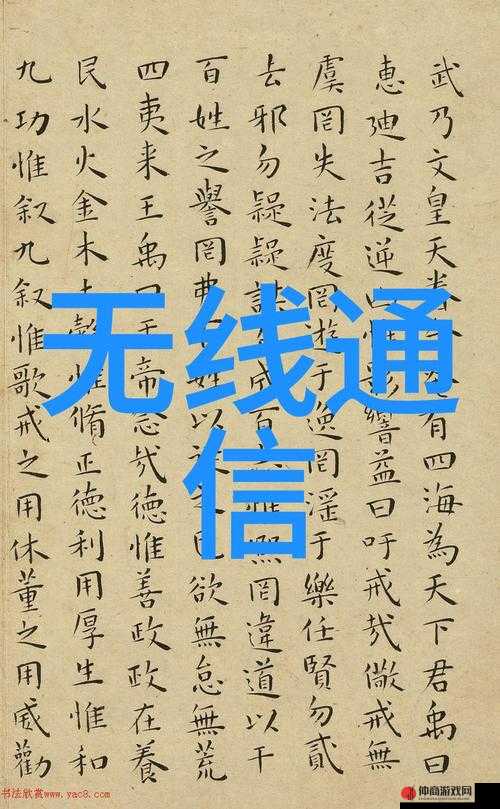 武乃文皇天眷有四海為天下君禹曰
惠迪吉從逆凶惟影響益曰吁戒哉儆戒無
虞罔失法度罔遊于逸罔淫于樂任賢勿貳
去邪勿疑疑成百惟熙罔違道以干
百姓之譽罔姓以欲無怠無荒
四夷来王禹曰帝念哉德惟善政政在養
民水火金木土穀惟脩正德利用厚生惟和
九功惟叙九叙惟歌戒之用休董之用威勸
无线通
信
书法欣赏www.yac8.com
仲商游戏网